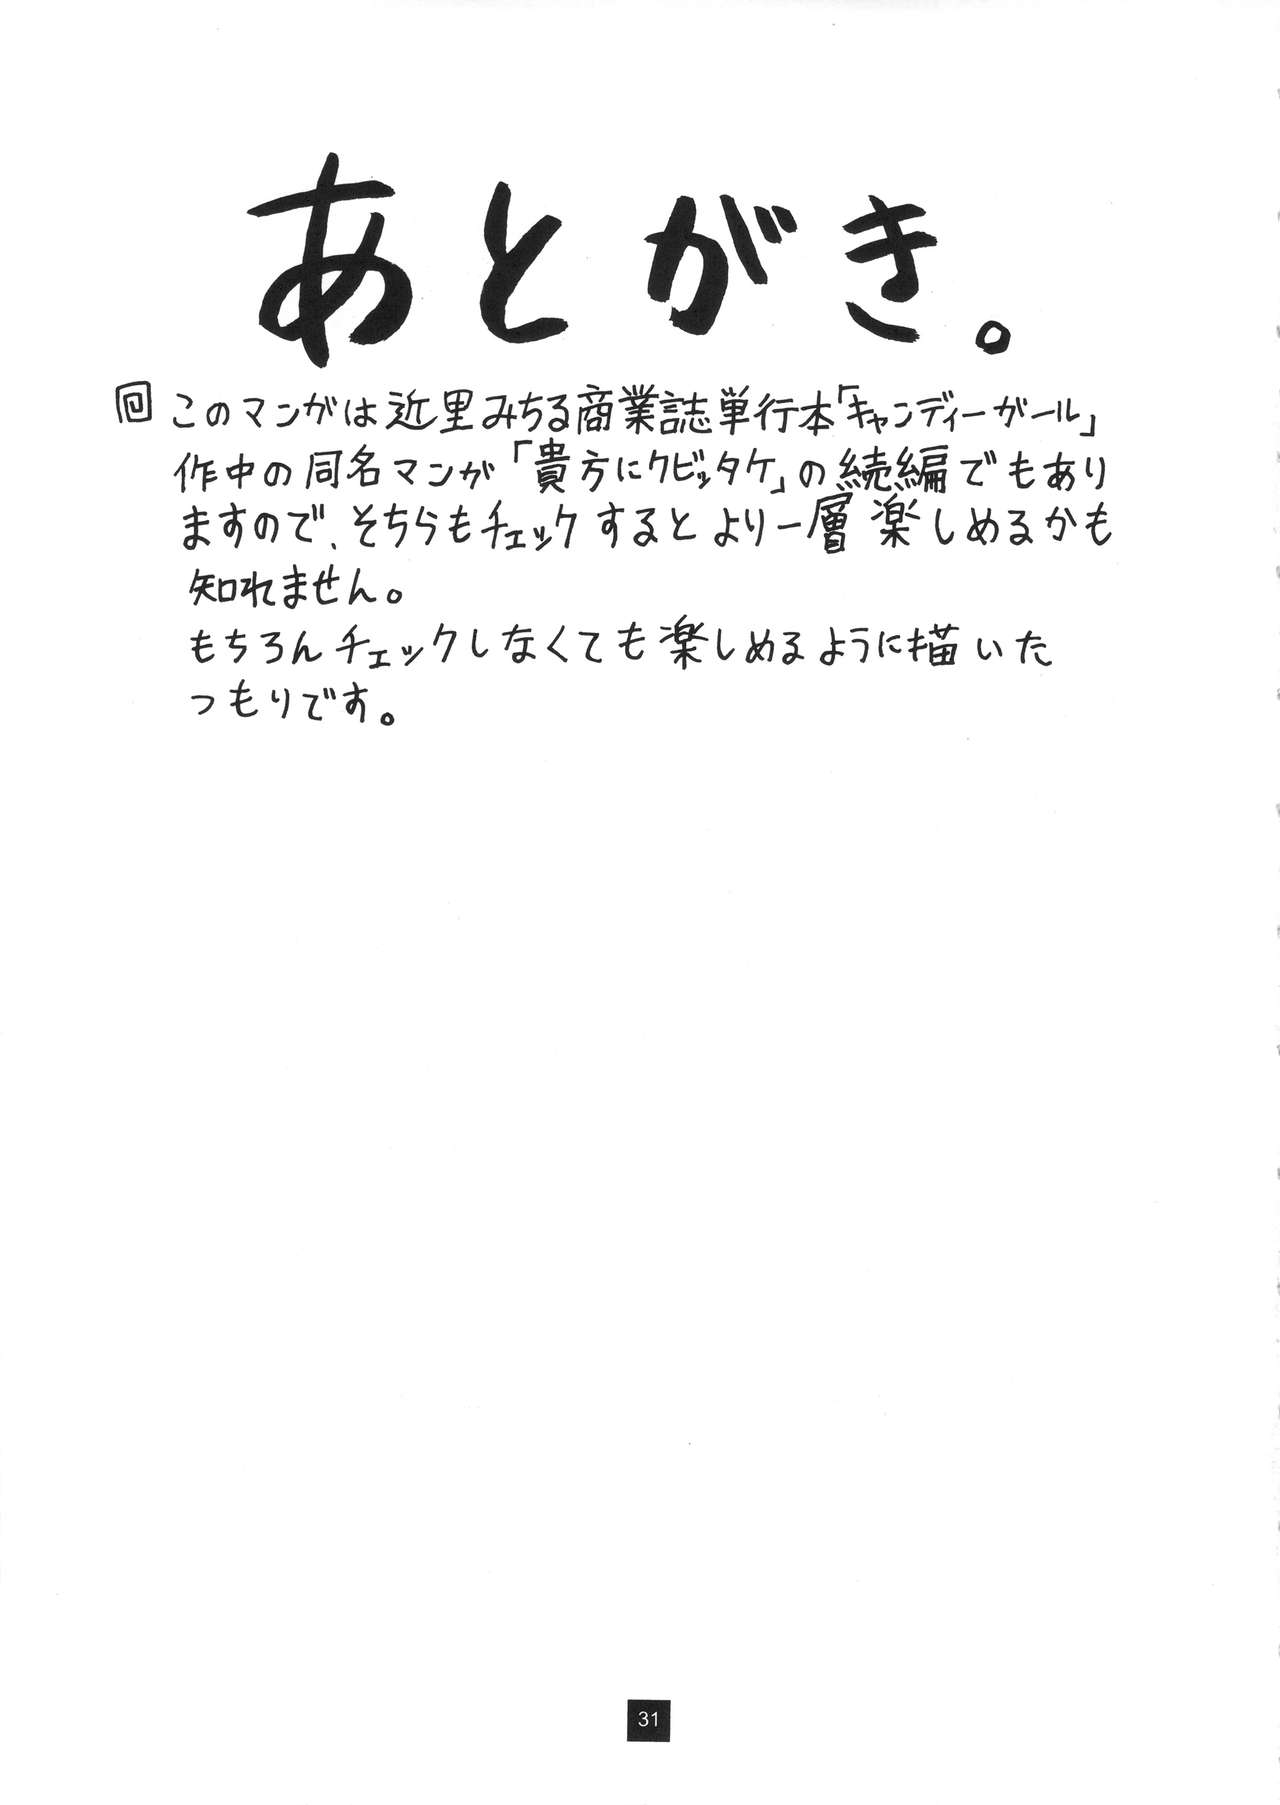 あとがき。
回 このマンガは近里みちる商業誌単行本「キャンディーガール」
作中の同名マンガ「貴方にクビッタケ」の続編でもあり
ますので、そちらもチェックするとより一層楽しめるかも
知れません。
もちろんチェックしなくても楽しめるように描いた
つもりです。
31